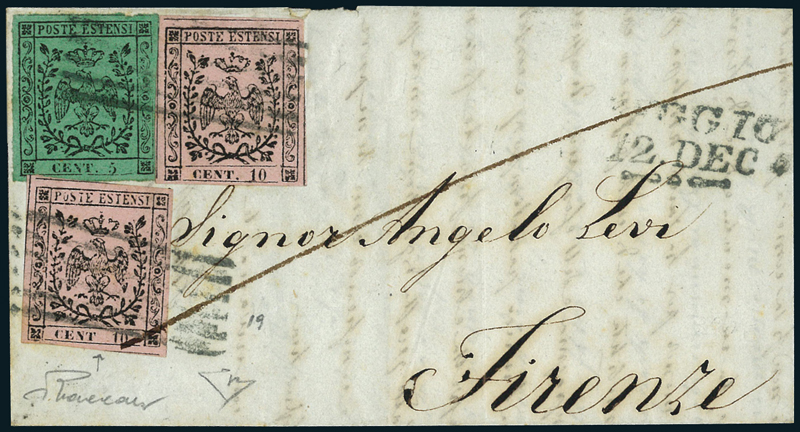 POSTE ESTENSI
CENT. 5
POSTE ESTENSI
CENT. 10
POSTE ESTENSI
CENT 10
EGGIO
12 DEC
Signor Angelo Levi
Firenze
19